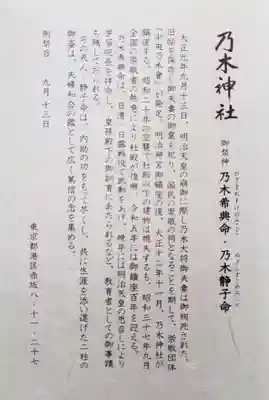 乃木神社
御祭神 乃木希典命・乃木静子命
大正元年九月十三日、明治天皇の崩御に際し乃木大将御夫妻は御殉死された。
旧邸を保存し御夫妻の御霊を祀り、国民の崇敬の的となることを期して、崇敬団体
「中央乃木會」が発足。明治神宮御鎮座の後、大正十二年十一月、乃木神社が
鎮座する。昭和二十年の空襲で社殿以下の建物は焼失するも、昭和三十七年九月
全国の崇敬者の熱意により社殿が復興、令和五年には御鎮座百年を迎える。
乃木希典命は、日清・日露戦役で武勲をあげ、晩年には明治天皇の思召しにより
学習院長を拝命し、皇孫殿下の御訓育にあたられるなど、教育者としての御事蹟
も残しておられる。
その夫人・静子命は、内助の功をもって尽くし、共に生涯を添い遂げた二柱の
御姿は、夫婦和合の鑑として広く篤信の念を集める。
例祭日 九月十三日
東京都港区赤坂八・十一・二十七